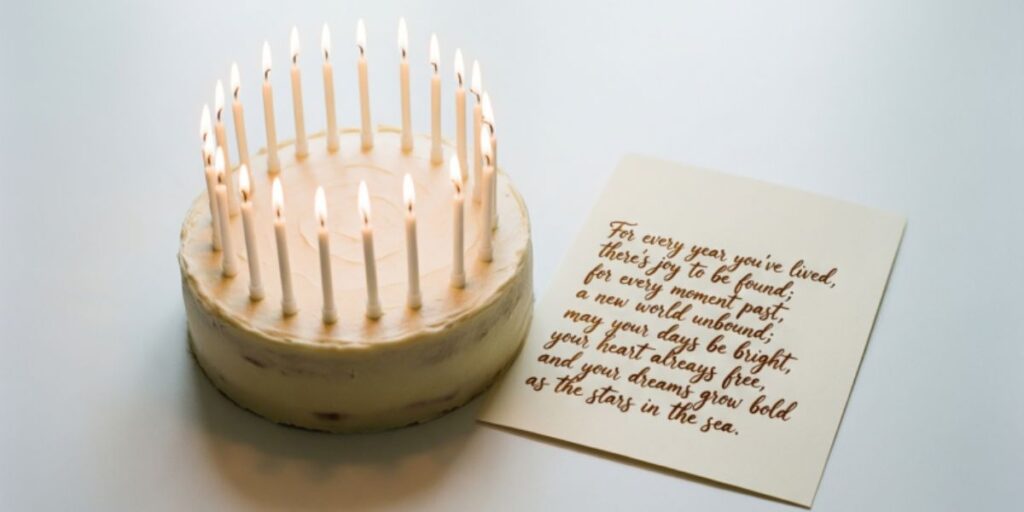 For every year you've lived,
there's joy to be found;
for every moment past,
a new world unbound;
may your days be bright,
your heart alreays free,
and your dreams grow bold
as the stars in the sea.